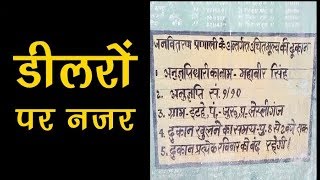 डीलरों
पर नजर
जनवितरण प्रणाली के अन्तर्गत उचित मूल्य की दुकान
1. अनुज्ञप्तिधारी का नाम- महाबीर सिंह
2. अनुज्ञप्ति सं. 9/90
3. ग्राम- इटहे, पं.-
4. दुकान खुलने का समय पु. 8 से 2 बजे तक
5. दुकान प्रत्येक रविवार को बंद रहेगी।